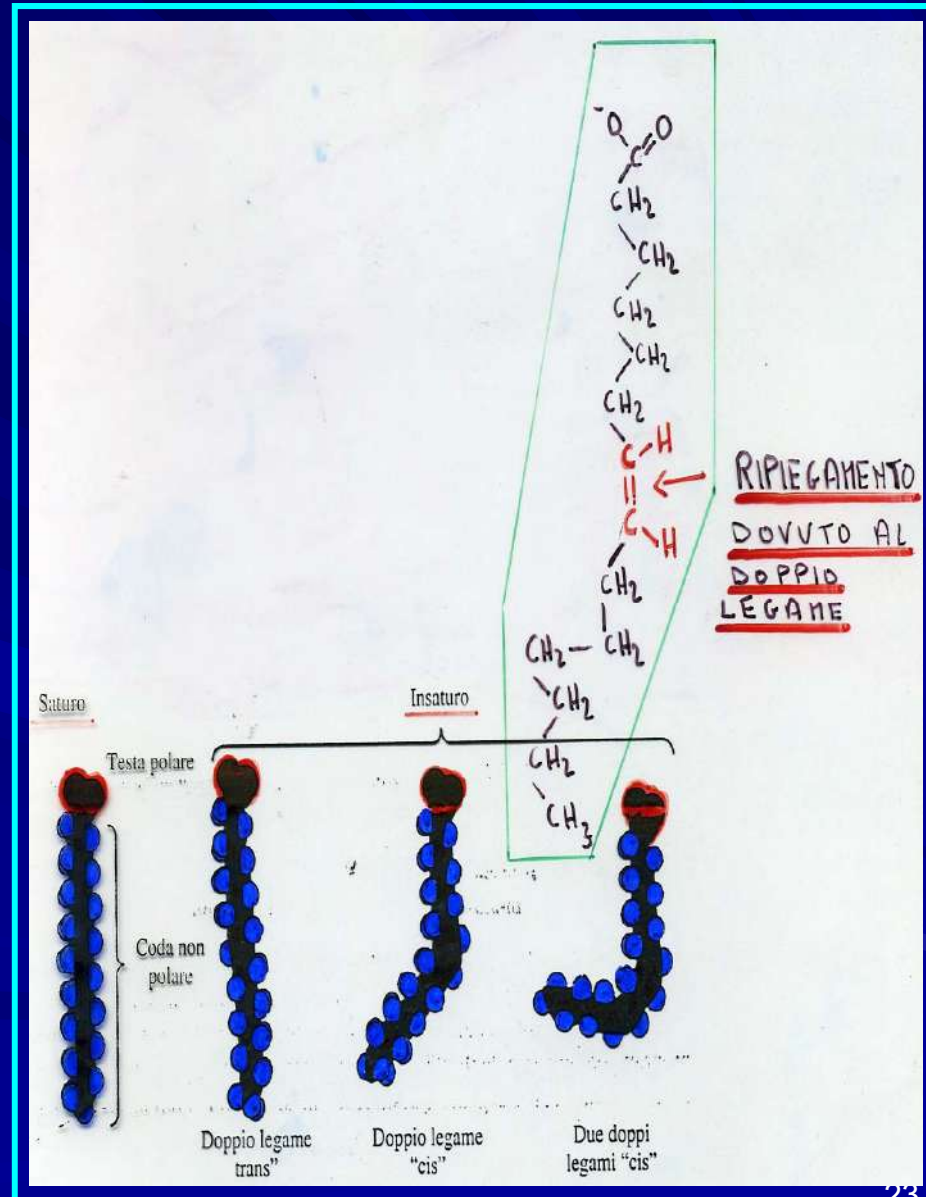 ⁻O O
C
CH₂
CH₂
CH₂
CH₂
CH₂
C H
C H
CH₂
CH₂— CH₂
CH₂
CH₂
CH₃
RIPIEGAMENTO
DOVUTO AL
DOPPIO
LEGAME
Saturo
Insaturo
Testa polare
Coda non
polare
Doppio legame
trans”
Doppio legame
“cis”
Due doppi
legami “cis”
23